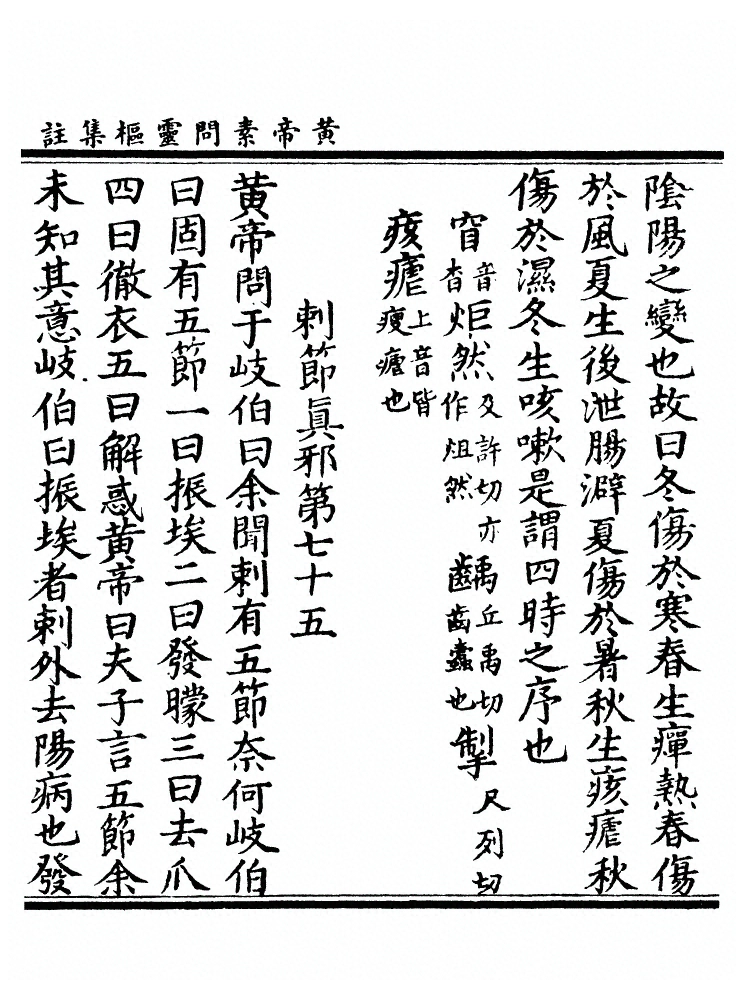 黃帝素問靈樞集註
陰陽之變也故曰冬傷於寒春生癉熱春傷
於風夏生後泄腸澼夏傷於暑秋生痎瘧秋
傷於濕冬生咳嗽是謂四時之序也
窅音杳炬然及許切亦作然齲丘禹切齒蠹也掣尺列切
痎瘧上音皆瘦瘧也
刺節眞邪第七十五
黃帝問于岐伯曰余聞刺有五節奈何岐伯
曰固有五節一曰振埃二曰發矇三曰去爪
四曰徹衣五曰解惑黃帝曰夫子言五節余
未知其意岐伯曰振埃者刺外去陽病也發